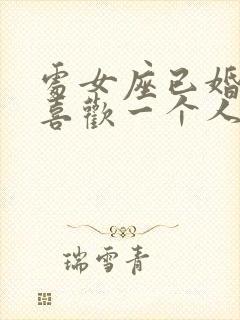 處女座已婚
喜歡一个人
瑞雪青